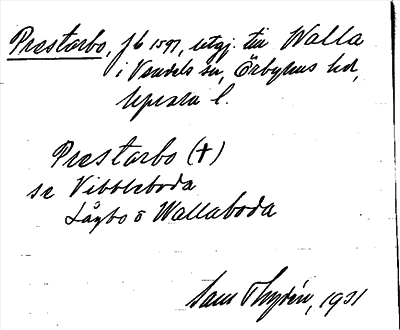 Prestarbo, f b 1591, utgj. till Walla
i Vendels sn, Örbyhus hd,
Uppsala l.
Prestarbo (†)
se Vibbleboda
Låzbo o Wallaboda
Sam Thyrén, 1931